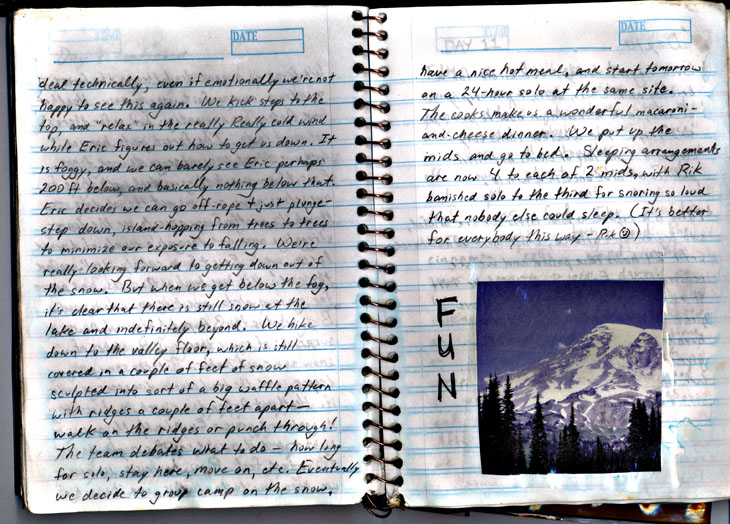 DATE
deal technically, even if emotionally we're not
happy to see this again. We kick steps to the
top, and "relax" in the really Really cold wind
while Eric figures out how to get us down. It
is foggy, and we can barely see Eric perhaps
200 ft below, and basically nothing below that.
Eric decides we can go off-rope + just plunge-
step down, island-hopping from trees to trees
to minimize our exposure to falling. We're
really looking forward to getting down out of
the snow. But when we get below the fog,
it's clear that there is still snow at the
lake and indefinitely beyond. We hike
down to the valley floor, which is still
covered in a couple of feet of snow
sculpted into sort of a big waffle pattern
with ridges a couple of feet apart—
walk on the ridges or punch through!
The team debates what to do – how long
for solo, stay here, move on, etc. Eventually
we decide to group camp on the snow,
DAY 11
DATE
have a nice hot meal, and start tomorrow
on a 24-hour solo at the same site.
The cooks make us a wonderful macaroni-
and-cheese dinner. We put up the
mids and go to bed. Sleeping arrangements
are now 4 to each of 2 mids, with Rik
banished solo to the third for snoring so loud
that nobody else could sleep. (It's better
for everybody this way – Rik ☺)
FUN